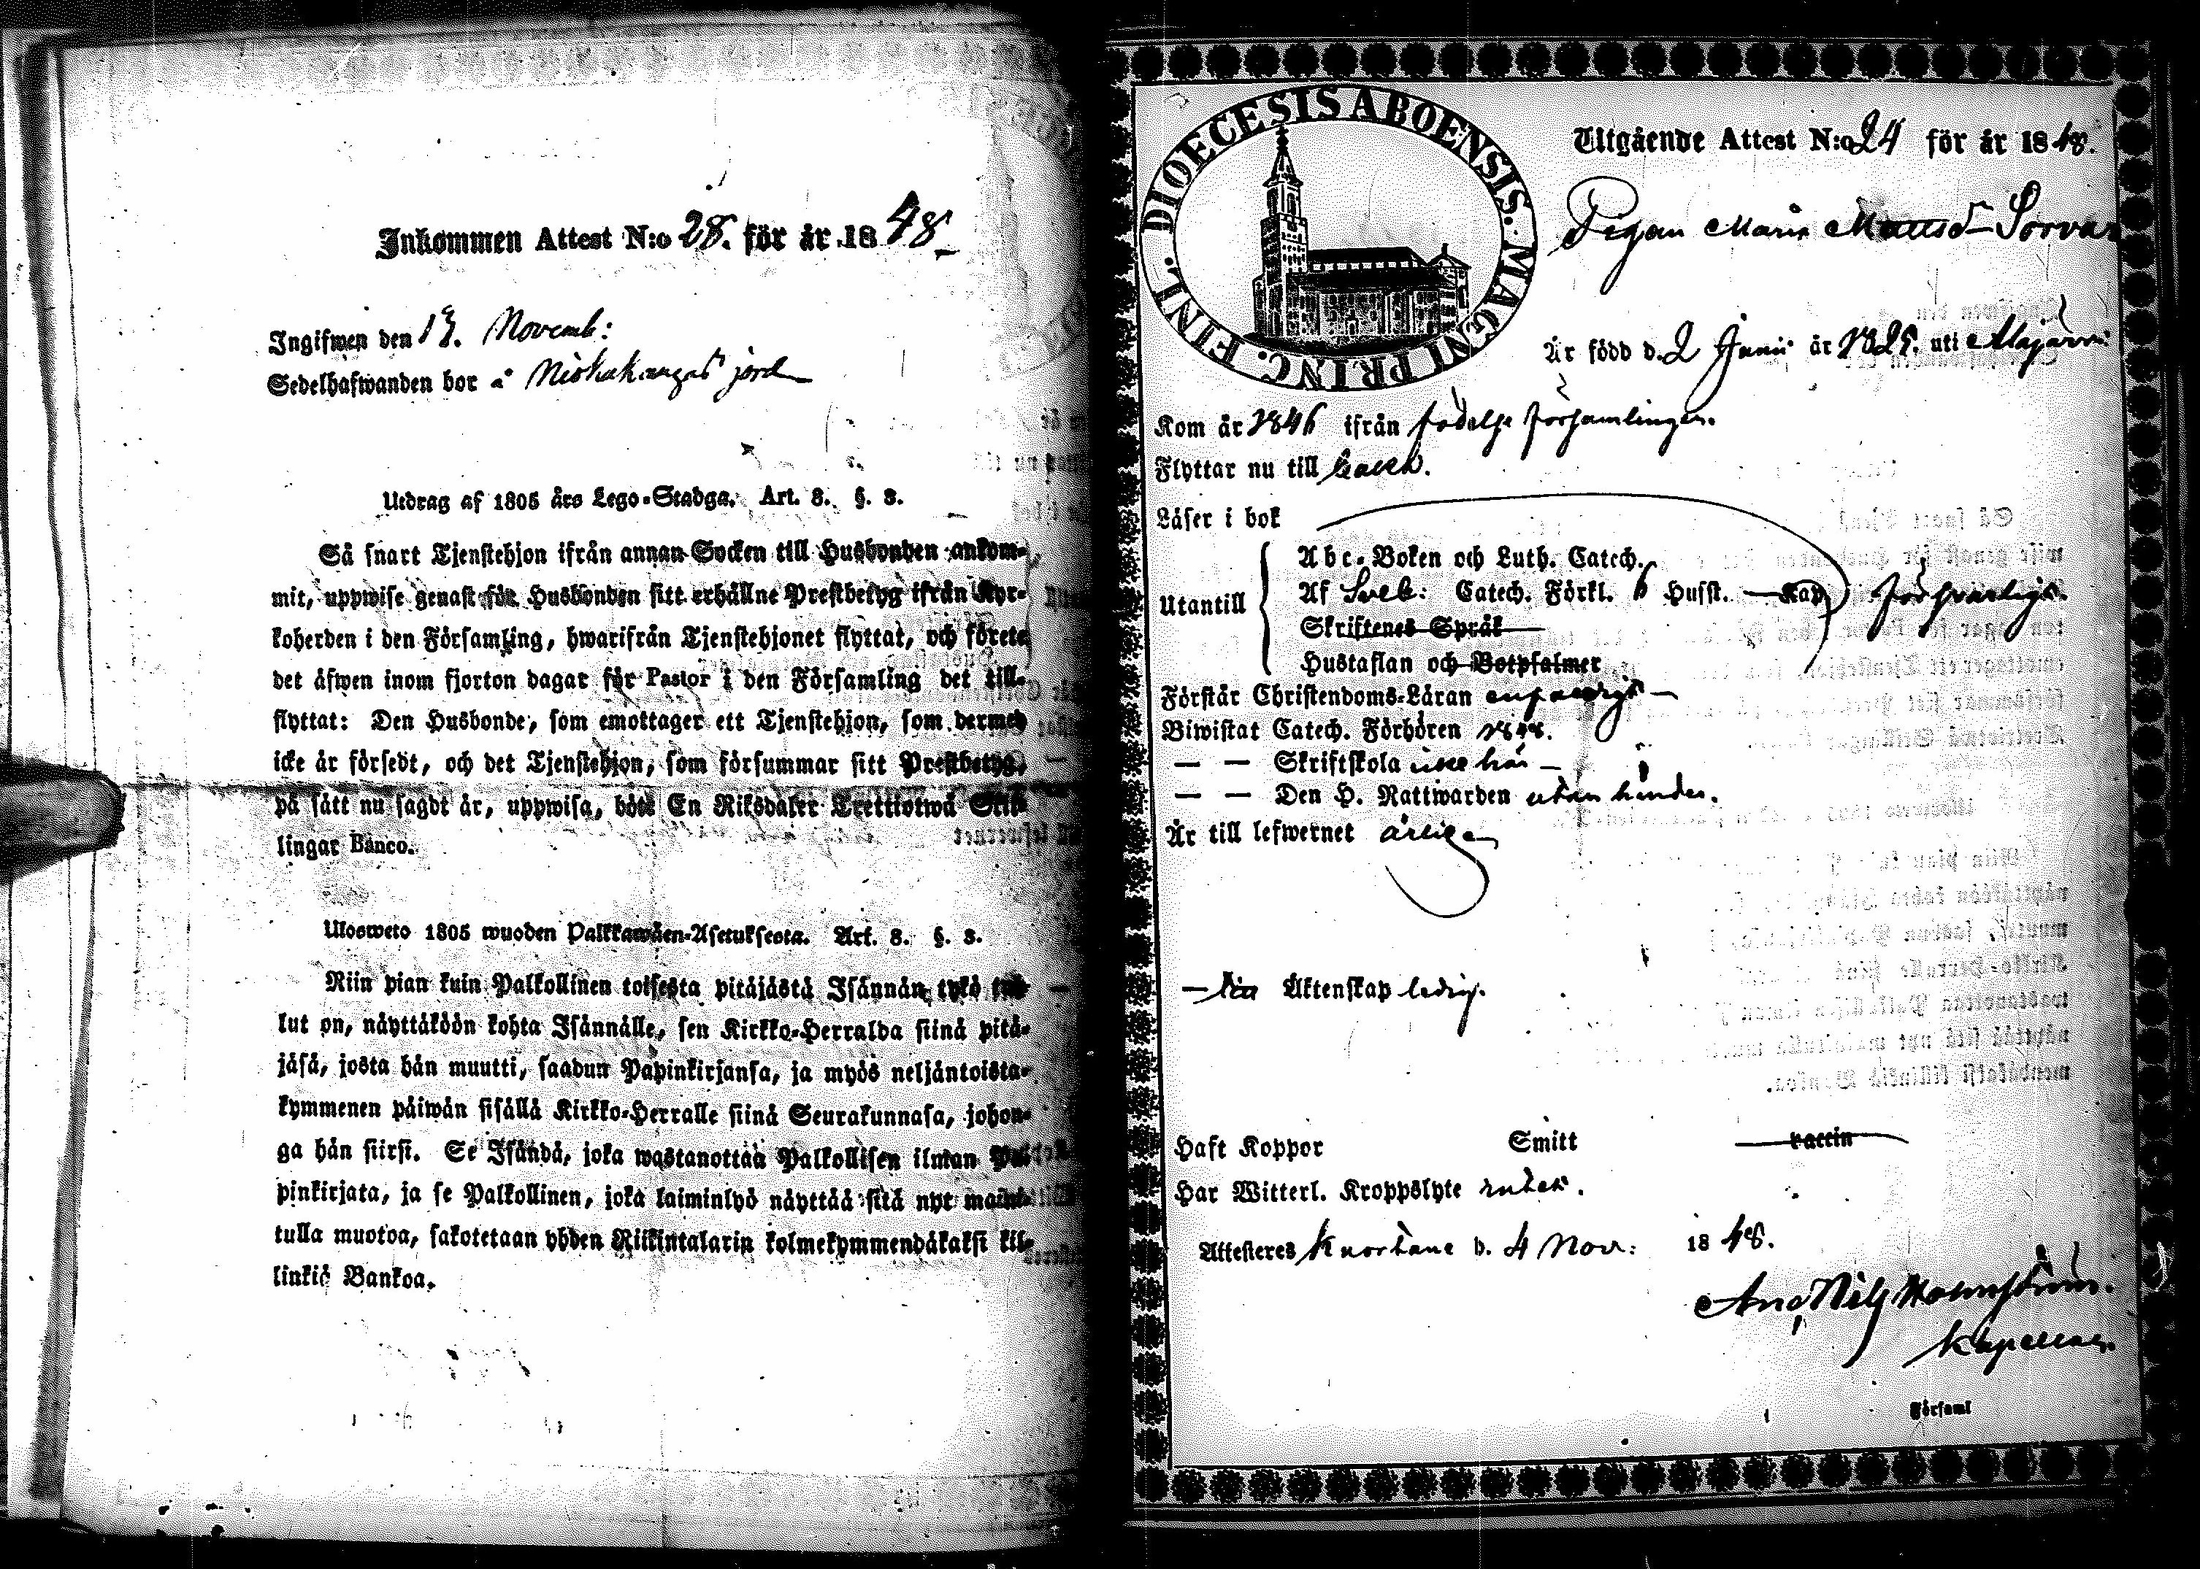 Inkommen Attest N:o 28. för år 1848
Ingifwen den 13. Novemb:
Sedelhafwanden bor å Niskakangas jord
Utdrag af 1805 års Lego-Stadga. Art. 8. §. 3.
Så snart Tjenstehjon ifrån annan Socken till Husbonden ankom-
mit, uppwise genast för Husbonden sitt erhållne Prestbetyg ifrån Kyr-
koherden i den Församling, hwarifrån Tjenstehjonet flyttat, och förete
det äfwen inom fjorton dagar för Pastor i den Församling det till-
flyttat: Den Husbonde, som emottager ett Tjenstehjon, som dermed
icke är försedt, och det Tjenstehjon, som försummar sitt Prestbetyg,
på sätt nu sagdt är, uppwisa, böte En Riksdaler Trettiotwå Skil-
lingar Banco.
Ulosweto 1805 wuoden Palkkawäen-Asetuksesta. Art. 8. §. 3.
Niin pian kuin Palkollinen toisesta pitäjästä Isännän tykö tul-
lut on, näyttäköön kohta Isännälle, sen Kirkko-Herralda siinä pitä-
jäsä, josta hän muutti, saadun Papinkirjansa, ja myös neljäntoista-
kymmenen päiwän sisällä Kirkko-Herralle siinä Seurakunnasa, johon-
ga hän siirsi. Se Isändä, joka wastanottaa Palkollisen ilman Pap-
pinkirjata, ja se Palkollinen, joka laiminlyö näyttää sitä nyt maini-
tulla muotoa, sakotetaan yhden Riikintalarin kolmekymmendäkaksi kil-
linkiä Bankoa.
DIOECESIS ABOENSIS. MAGNI PRINC. FINL.
Utgående Attest N:o 24 för år 1848.
Pigan Maria Mattsd Sorva
Är född d. 2 Junii år 1825. uti Alajärvi
Kom år 1846 ifrån födelse församlingen.
Flyttar nu till
Läser i bok
Abc-Boken och Luth. Catech.
Utantill Af Sveb: Catech. Förkl. 6 Husst. Kap försvarligt.
Skriftenes Språk
Hustaflan och Botpsalmer
Förstår Christendoms-Läran enfaldigt
Biwistat Catech. Förhören 1848.
— — Skriftskola icke här
— — Den H. Nattwarden utan hinder.
Är till lefwernet ärlig
Äktenskap ledig.
Haft Koppor Smitt vaccin
Har Witterl. Kroppslyte intet.
Attesteres Kuortane d. 4 Nov: 1848.
And Nils Holmström.
Kapellan.
Församl